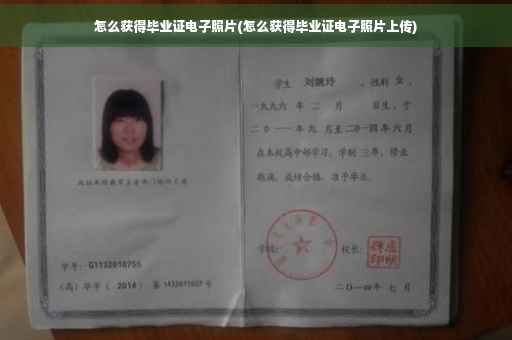 怎么获得毕业证电子照片(怎么获得毕业证电子照片上传)
学生 刘婉玲 ，性别 女 ，
一九九六 年 二 月 日生，于
二〇一一 年 九 月至 二〇一四 年 六 月
在本校高中部学习，学制 三 年，修业
期满，成绩合格，准予毕业。
学号： G1132010755
学校：
校长：
(高) 毕字 ( 2014 ) 第 1432011027 号
二〇一四年 七 月